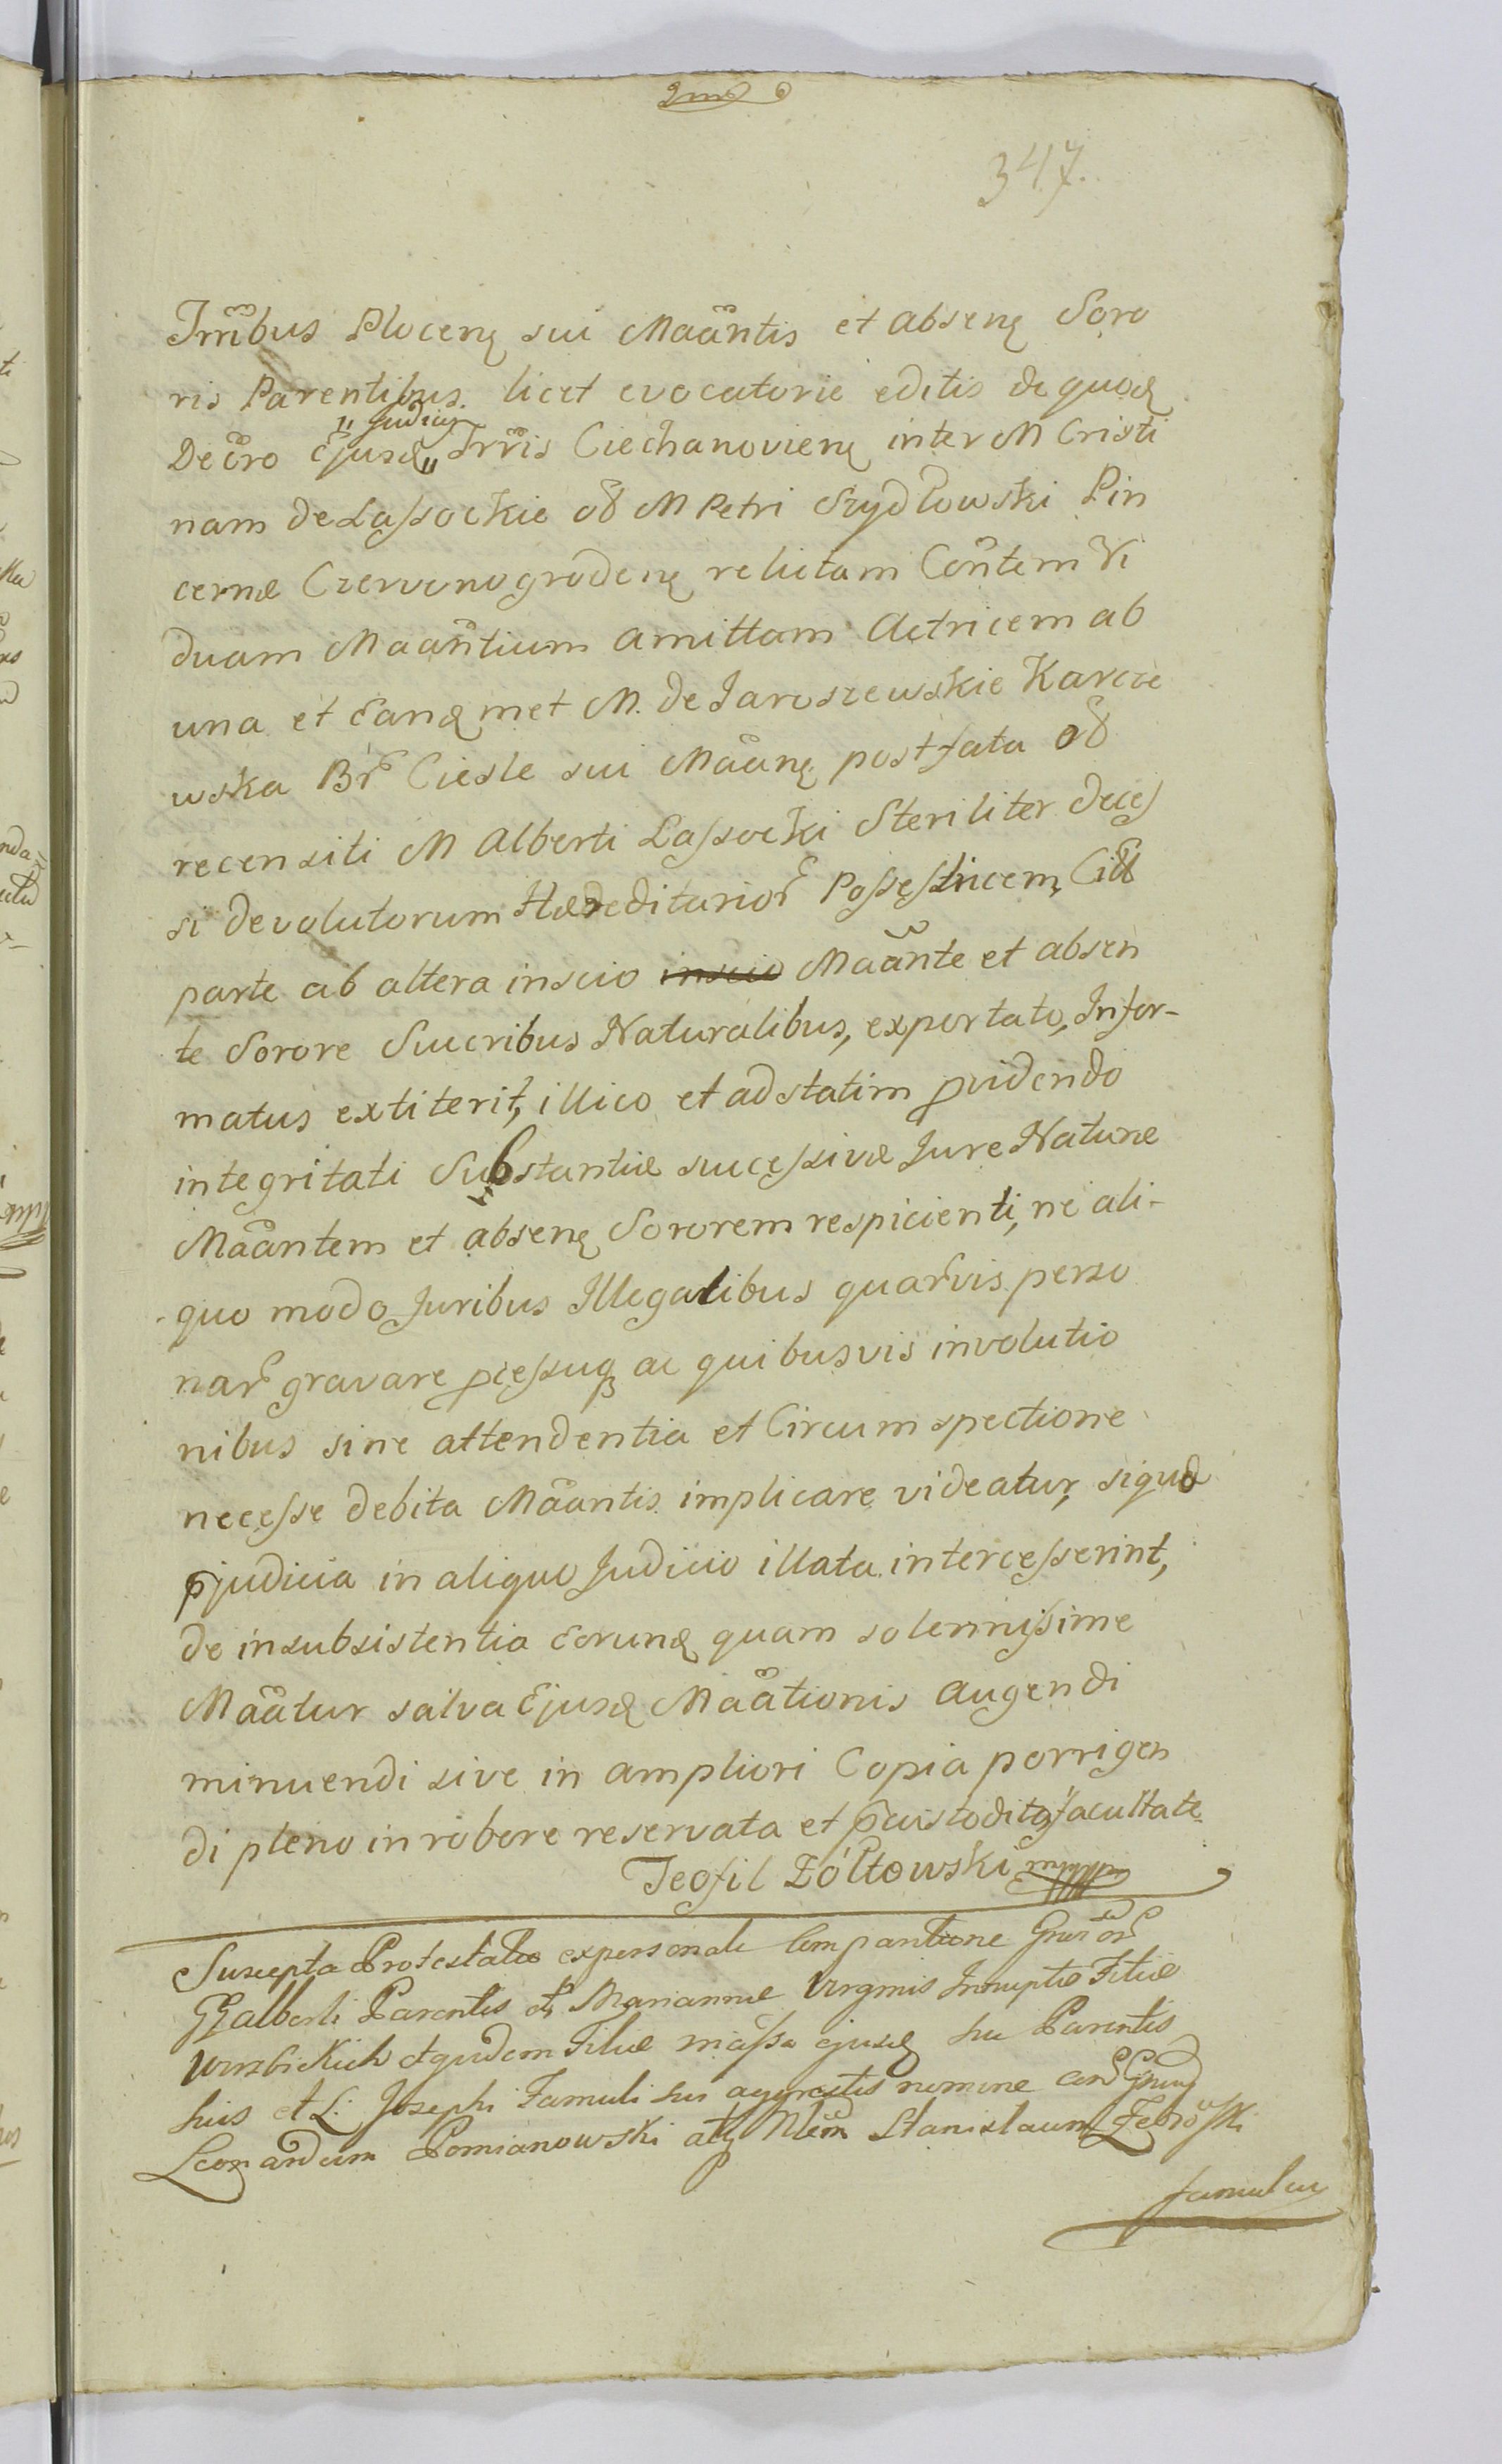 347.
Trribus Plocenę sui Maantis et absenę Soro
ris Parentibus. licet evocatorie editis de quoď
Decro Ejusď „Judicij„ Trris Ciechanovienę inter M Cristi
nam de Lassockie oł M Petri Szydłowski Pin
cernæ Czervonogrodenę relictam Contem Vi
duam Maantium Amittam Actricem ab
una et Eanď met M. de Jaroszewskie Karcze
wska Br Ciesle sui Maanę post fata oł
recensiti M Alberti Lassocki Steriliter deces
si devolutorum Hæreditarior Possestricem, Citt
parte ab altera inscio inscio Maante et absen
te Sorore Sucribus Naturalibus, exportato, Infor-
matus extiterit, illico et adstatim pvidendo
integritati Substantiæ successivæ Jure Naturæ
Maantem et absenę Sororem respicienti, ne ali-
quo modo Juribus Illegalibus quarvis perso
nar gravare pcessuq ac quibusvis involutio
nibus sine attendentia et Circumspectione
necesse debita Maantis implicare videatur, siquæ
pjudicia in aliquo Judicio illata intercesserint,
de insubsistentia Eorunď quam solennissime
Maatur salva Ejusď Maationis augendi
minuendi sive in ampliori Copia porrigen
di pleno in robore reservata et pcustodita facultate.
Teofil Żółtowski mppp
Suscepta Protestatio ex personali Comparitione Gnror
GG Alberti Parentis et Mariannæ Virginis Innuptæ Filiæ
Wierzbickich et quidem Filiæ in assa ejusď sui Parentis
suis et L: Josephi Famuli sui aggregatis nomine con Gnum
Leonardum Pomianowski atq Nlem Stanislaum
famulum